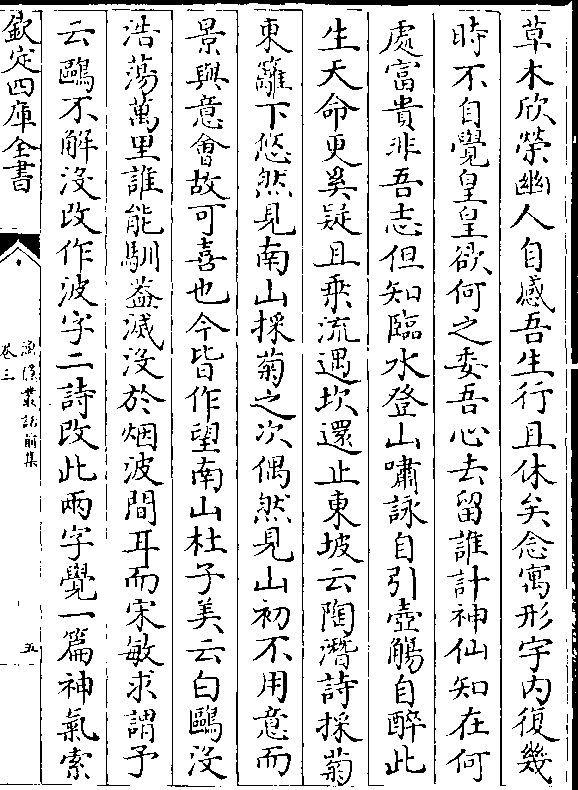 草木欣榮幽人自感吾生行且休矣念寓形宇内復幾
時不自覺皇皇欲何之委吾心去留誰計神仙知在何
處富貴非吾志但知臨水登山嘯詠自引壺觴自醉此
生天命更奚疑且乗流遇坎還止東坡云陶潛詩採菊
東籬下悠然見南山採菊之次偶然見山初不用意而
景與意會故可喜也今皆作望南山杜子美云白鷗没
浩蕩萬里誰能馴葢滅没於烟波間耳而宋敏求謂予
云鷗不解没改作波字二詩改此兩字覺一篇神氣索
欽定四庫全書
漁隱叢話前集
卷三
五